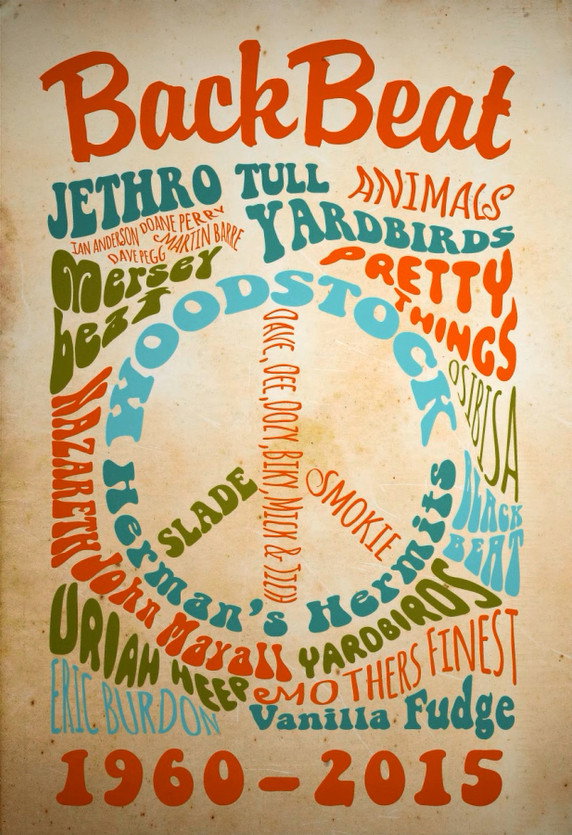 BackBeat
JETHRO TULL
ANIMALS
IAN ANDERSON DOANE PERRY
DAVE PEGG MARTIN BARRE
YARDBIRDS
Mersey
beat
PRETTY
THINGS
WOODSTOCK
DAVE, DEE, DOZY, BIKY MICK & TICH
OSIBISA
NAZARETH
SLADE
SMOKIE
BLACK
BEAT
Herman's Hermits
John Mayall
YARDBIRDS
URIAH HEEP
MOTHERS FINEST
ERIC BURDON
Vanilla Fudge
1960-2015